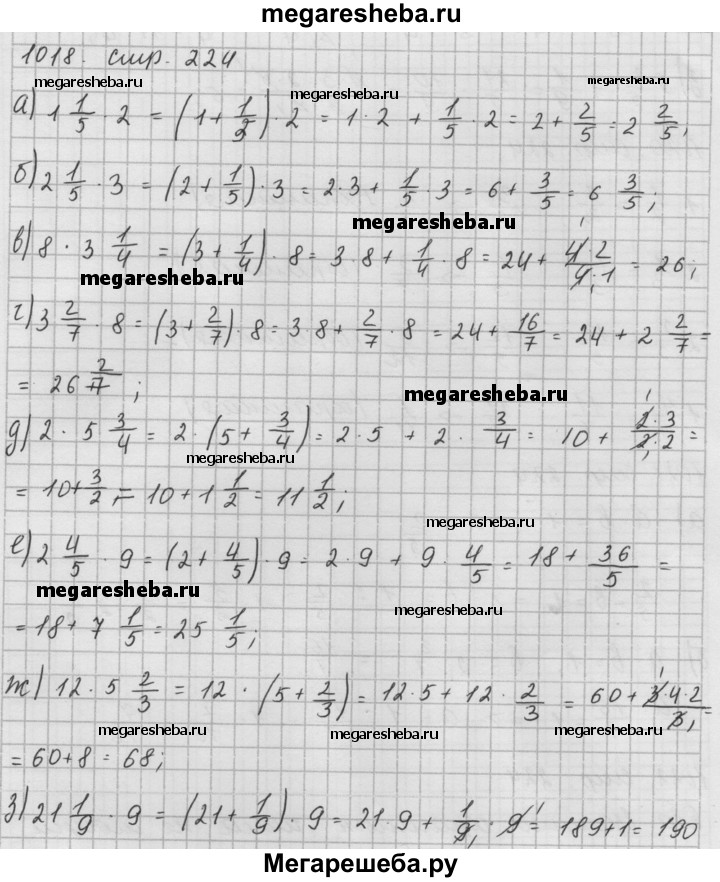 megaresheba.ru
1018. стр. 224
megaresheba.ru
megaresheba.ru
megaresheba.ru
а) 1 1/5 · 2 = (1 + 1/5) · 2 = 1 · 2 + 1/5 · 2 = 2 + 2/5 = 2 2/5;
б) 2 1/5 · 3 = (2 + 1/5) · 3 = 2 · 3 + 1/5 · 3 = 6 + 3/5 = 6 3/5;
megaresheba.ru
в) 8 · 3 1/4 = (3 + 1/4) · 8 = 3 · 8 + 1/4 · 8 = 24 + 4 · 2/4 · 1 = 26;
megaresheba.ru
г) 3 2/7 · 8 = (3 + 2/7) · 8 = 3 8 + 2/7 · 8 = 24 + 16/7 = 24 + 2 2/7 =
= 26 2/7;
megaresheba.ru
д) 2 · 5 3/4 = 2 · (5 + 3/4) = 2 · 5 + 2 · 3/4 = 10 + 2 · 3/2 · 2 =
megaresheba.ru
= 10 + 3/2 = 10 + 1 1/2 = 11 1/2;
megaresheba.ru
е) 2 4/5 · 9 = (2 + 4/5) · 9 = 2 · 9 + 9 · 4/5 = 18 + 36/5 =
megaresheba.ru
megaresheba.ru
= 18 + 7 1/5 = 25 1/5;
ж) 12 · 5 2/3 = 12 · (5 + 2/3) = 12 · 5 + 12 · 2/3 = 60 + 3 · 4 · 2/3 =
megaresheba.ru
megaresheba.ru
megaresheba.ru
= 60 + 8 = 68;
з) 21 1/9 · 9 = (21 + 1/9) · 9 = 21 · 9 + 1/9 · 9 = 189 + 1 = 190
Мегарешеба.ру